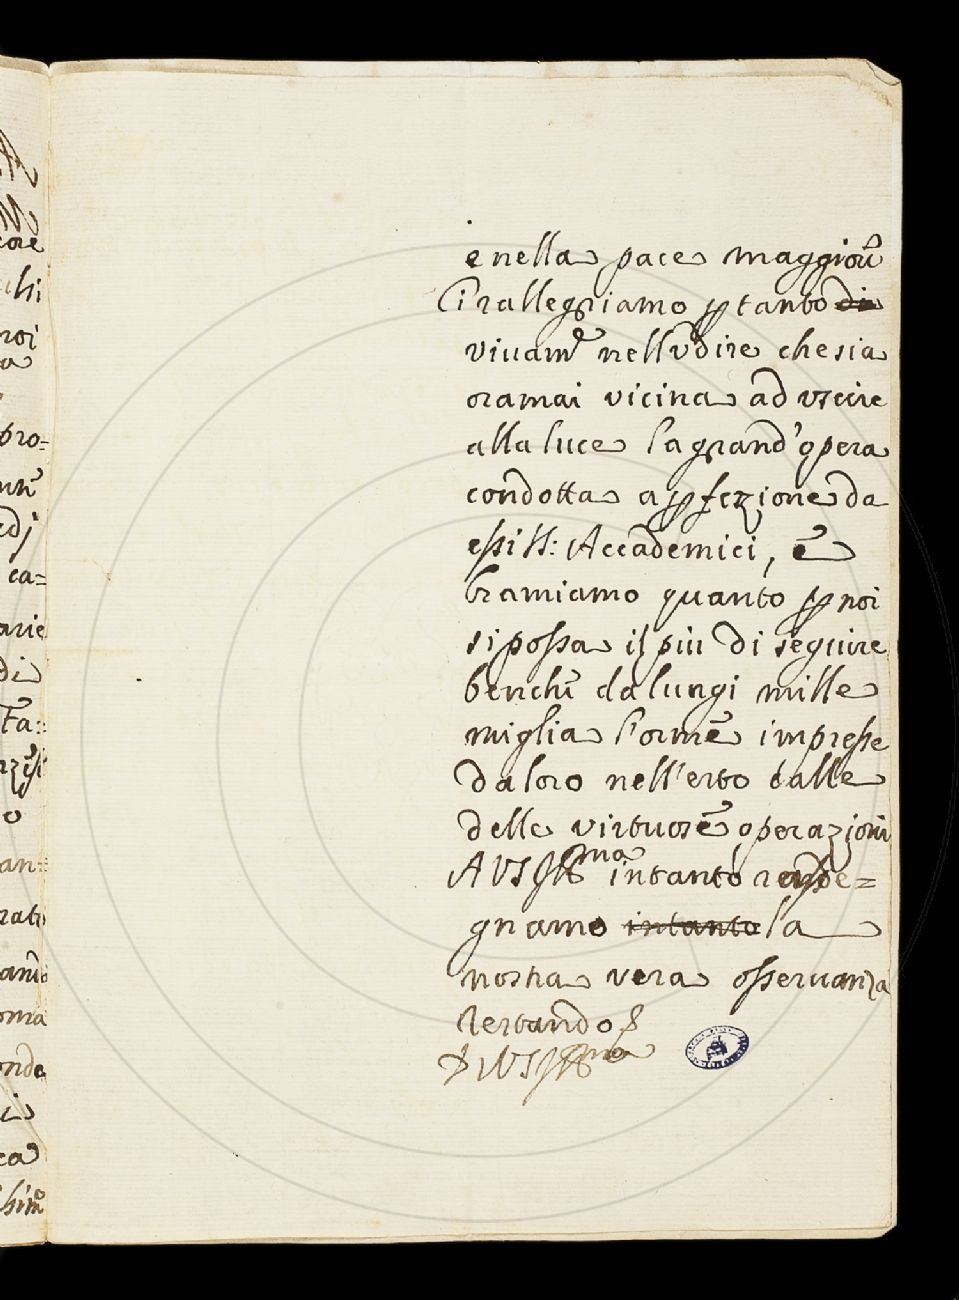 e nella pace maggiori
Ci rallegriamo p tanto di
vivamᵉ nell'vdire che sia
oramai vicina ad vscire
alla luce la grand'opera
condotta a pfezione da
essi SS: Accademici, e
bramiamo quanto p noi
si possa il piu di seguire
benche da lungi mille
miglia l'orme impresse
da loro nell'erto calle
delle virtuose operazioni
A VS Illᵐᵃ intanto rasse=
gnamo intanto la
nostra vera osservanza
restando
D VS Illᵐᵃ
core
hi
roi
a
pro=
ca=
arie
di
ta:
o
an=
rato
ando
oma
onde
ca